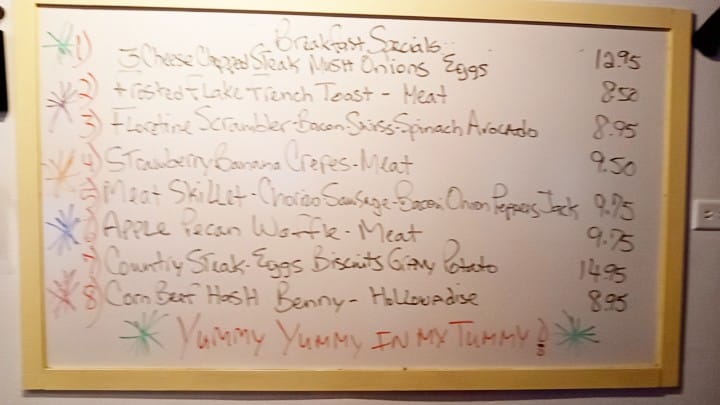 Breakfast Specials..
1) 3 Cheese Chopped Steak Mush Onions Eggs 12.95
2) Frosted Flake French Toast - Meat 8.50
3) Floretine Scrambler-Bacon-Swiss-Spinach Avocado 8.95
4) Strawberry Banana Crepes-Meat 9.50
5) Meat Skillet-Chorizo Sausage-Bacon Onion Peppers Jack 9.75
6) Apple Pecan Waffle-Meat 9.75
7) Country Steak-Eggs Biscuits Gravy Potato 14.95
8) Corn Beef Hash Benny-Hollowndise 8.95
Yummy Yummy In My Tummy!